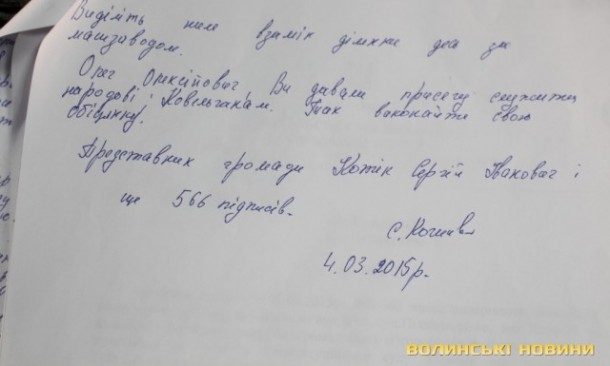 Виділіть нам взамін ділянки два за
машзаводом.
Олег Олексійович Ви давали присягу служити
народові і Ковельчанам. Так виконайте свою
обіцянку!
Представник громади Котік Сергій Іванович і
ще 566 підписів.
4.03.2015р.
ВОЛИНСЬКІ НОВИНИ